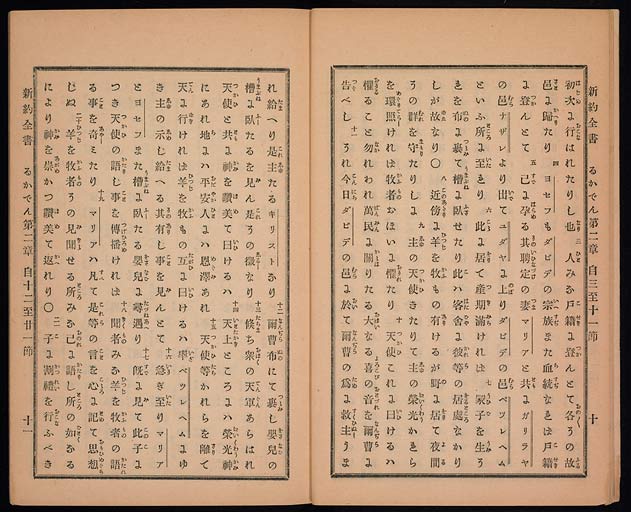 新約全書 るかでん第二章 自三至十一節 十
初次に行はれたりし也 三 人みな戸籍に登んとて各その故
邑に歸たり 四 ヨセフもダビデの宗族また血統なれば戸籍
に登んとて 五 已に孕る其聘定の妻マリアと共にガリラヤ
の邑ナザレより出てユダヤに上りダビデの邑ベツレヘム
といふ所に至れり 六 此に居て産期滿ければ 七 冢子を生そ
れを布に裹て槽に臥せたり此は客舍に彼等の居處なかり
しが故なり〇 八 近傍に羊を牧もの有けるが野に居て夜間
その群を守たりしに 九 主の天使きたりて主の榮光かれら
を環照ければ牧者おほいに懼たり 十 天使これに曰けるは
懼ること勿れわれ萬民に關りたる大なる喜の音を爾曹に
告べし 十一 それ今日ダビデの邑に於て爾曹の爲に救主うま
れ給へり是主たるキリストなり 十二 爾曹布にて裹し嬰兒の
槽に臥たるを見ん是その徴なり 十三 倏ち衆の天軍あらはれ
天使と共に神を讚美て曰けるは 十四 上ところには榮光神
にあれ地には平安人には恩澤あれ 十五 天使等かれらを離て
天に行ければ羊を牧もの互に曰けるは率ベツレヘムにゆ
き主の示し給へる其有し事を見んとて 十六 急ぎ至りマリア
とヨセフまた槽に臥たる嬰兒に尋遇り 十七 既に見て此子に
つき天使の語し事を傳播ければ 十八 聞者みな羊を牧者の語
る事を奇みたり 十九 マリアは凡て是等の言を心に記て思想
しぬ 二十 羊を牧者その見聞せる所みな己に語し所の如なる
により神を崇かつ讚美て返れり〇 二一 子に割禮を行ふべき
新約全書 るかでん第二章 自十二至廿一節 十一